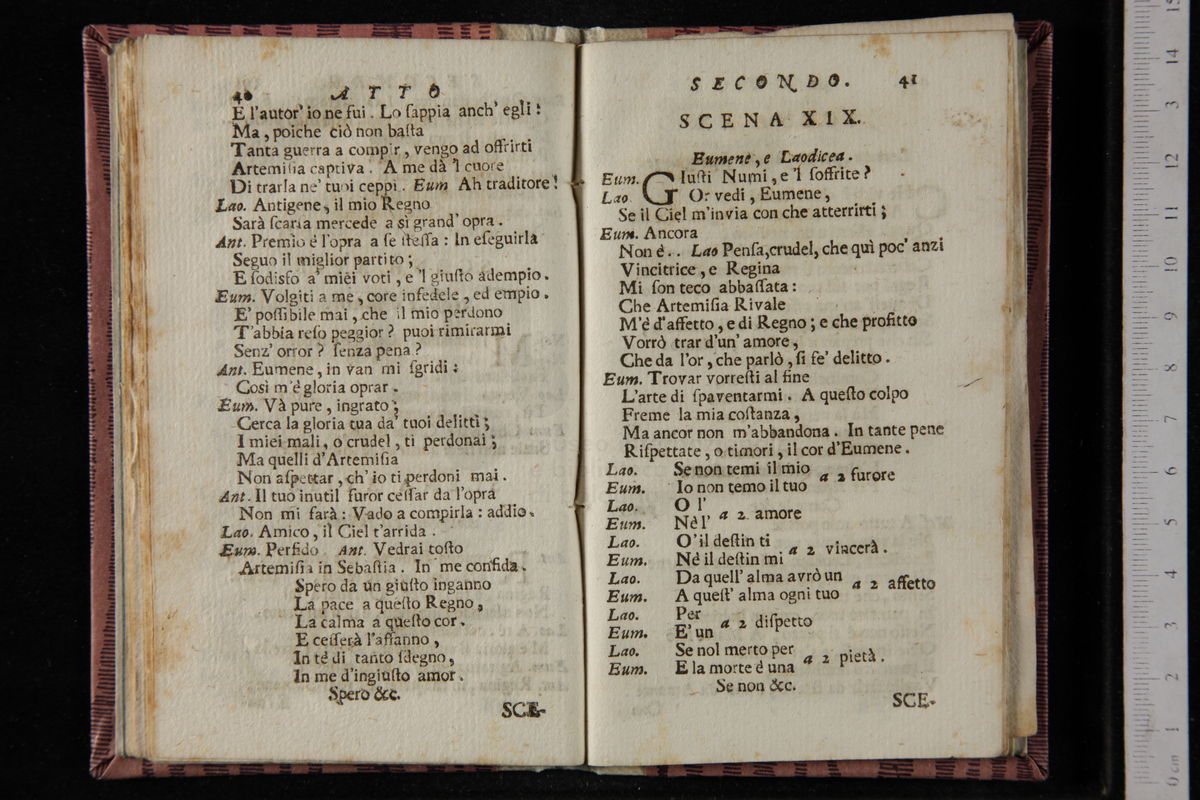 40 ATTO
E l'autor' io ne fui. Lo ſappia anch' egli!
Ma, poiche ciò non baſta
Tanta guerra a compir, vengo ad offrirti
Artemiſia captiva. A me dà 'l cuore
Di trarla ne' tuoi ceppi. Eum Ah traditore!
Lao. Antigene, il mio Regno
Sarà ſcarſa mercede a sì grand' opra.
Ant. Premio é l'opra a ſe ſteſſa: In eſeguirla
Seguo il miglior partito;
E ſodisfo a' miei voti, e 'l giuſto adempio.
Eum. Volgiti a me, core infedele, ed empio.
E' poſſibile mai, che il mio perdono
T'abbia reſo peggior? puoi rimirarmi
Senz' orror? ſenza pena?
Ant. Eumene, in van mi ſgridi:
Così m'é gloria oprar.
Eum. Và pure, ingrato;
Cerca la gloria tua da' tuoi delitti;
I miei mali, o crudel, ti perdonai;
Ma quelli d'Artemiſia
Non aſpettar, ch' io ti perdoni mai.
Ant. Il tuo inutil furor ceſſar da l'opra
Non mi farà: Vado a compirla: addio.
Lao. Amico, il Ciel t'arrida.
Eum. Perfido. Ant. Vedrai toſto
Artemiſia in Sebaſtia. In me confida.
Spero da un giuſto inganno
La pace a queſto Regno,
La calma a queſto cor.
E ceſſerà l'affanno,
In té di tanto ſdegno,
In me d'ingiuſto amor.
Spero &c.
SCE-
SECONDO. 41
SCENA XIX.
Eumene, e Laodicea.
Eum. GIuſti Numi, e 'l ſoffrite?
Lao Or vedi, Eumene,
Se il Ciel m'invia con che atterrirti;
Eum. Ancora
Non é.. Lao Penſa, crudel, che quì poc' anzi
Vincitrice, e Regina
Mi ſon teco abbaſſata:
Che Artemiſia Rivale
M'é d'affetto, e di Regno; e che profitto
Vorrò trar d'un' amore,
Che da l'or, che parlò, ſi fe' delitto.
Eum. Trovar vorreſti al fine
L'arte di ſpaventarmi. A queſto colpo
Freme la mia coſtanza,
Ma ancor non m'abbandona. In tante pene
Riſpettate, o timori, il cor d'Eumene.
Lao. Se non temi il mio
Eum. Io non temo il tuo a 2 furore
Lao. O l'
Eum. Nè l' a 2 amore
Lao. O' il deſtin ti
Eum. Né il deſtin mi a 2 vincerà.
Lao. Da quell' alma avrò un
Eum. A queſt' alma ogni tuo a 2 affetto
Lao. Per
Eum. E' un a 2 diſpetto
Lao. Se nol merto per
Eum. E la morte é una a 2 pietà.
Se non &c.
SCE-